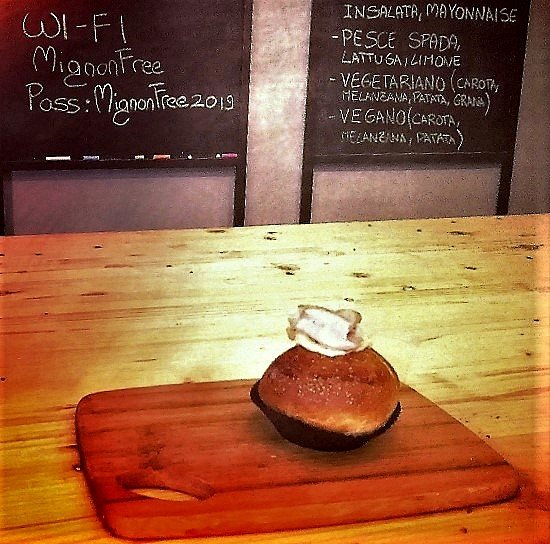 WI-FI
MignonFree
Pass: MignonFree2019
INSALATA, MAYONNAISE
-PESCE SPADA,
LATTUGA, LIMONE
-VEGETARIANO (CAROTA,
MELANZANA, PATATA, GRANA)
-VEGANO (CAROTA,
MELANZANA, PATATA)